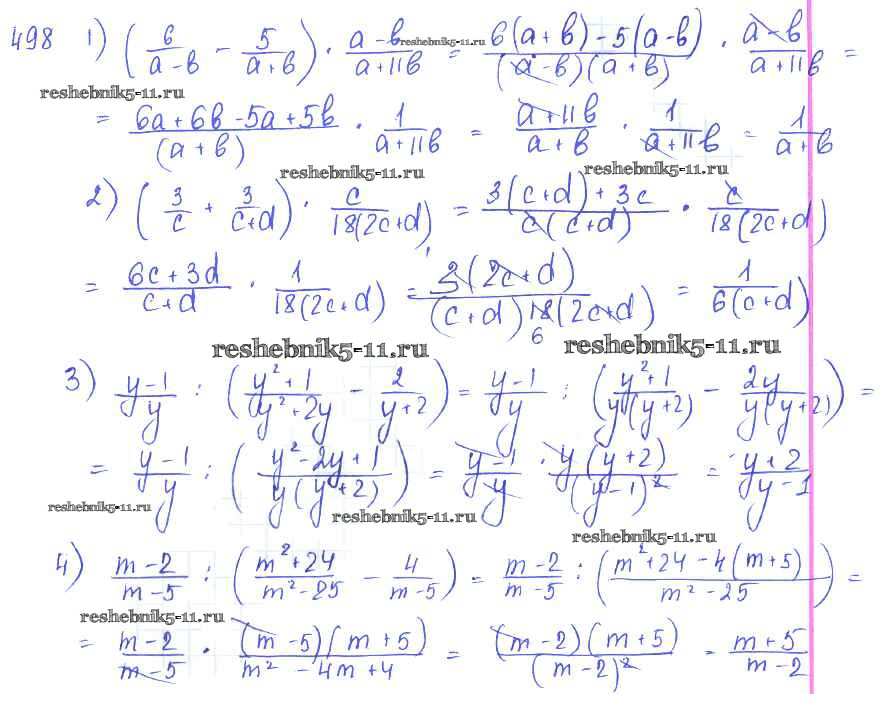 498 1) (6/(a-b) - 5/(a+b)) · (a-b)/(a+11b) = (6(a+b)-5(a-b))/((a-b)(a+b)) · (a-b)/(a+11b) =
reshebnik5-11.ru
reshebnik5-11.ru
= (6a+6b-5a+5b)/(a+b) · 1/(a+11b) = (a+11b)/(a+b) · 1/(a+11b) = 1/(a+b)
reshebnik5-11.ru reshebnik5-11.ru
2) (3/c + 3/(c+d)) · c/(18(2c+d)) = (3(c+d)+3c)/(c(c+d)) · c/(18(2c+d))
= (6c+3d)/(c+d) · 1/(18(2c+d)) = (3(2c+d))/((c+d)18(2c+d)) = 1/(6(c+d))
1 6
reshebnik5-11.ru reshebnik5-11.ru
3) (y-1)/y : ((y²+1)/(y²+2y) - 2/(y+2)) = (y-1)/y : ((y²+1)/(y(y+2)) - 2y/(y(y+2))) =
= (y-1)/y : ((y²-2y+1)/(y(y+2))) = (y-1)/y · (y(y+2))/((y-1)²) = (y+2)/(y-1)
reshebnik5-11.ru reshebnik5-11.ru
reshebnik5-11.ru
4) (m-2)/(m-5) : ((m²+24)/(m²-25) - 4/(m-5)) = (m-2)/(m-5) : ((m²+24-4(m+5))/(m²-25)) =
reshebnik5-11.ru
= (m-2)/(m-5) · ((m-5)(m+5))/(m²-4m+4) = ((m-2)(m+5))/((m-2)²) = (m+5)/(m-2)